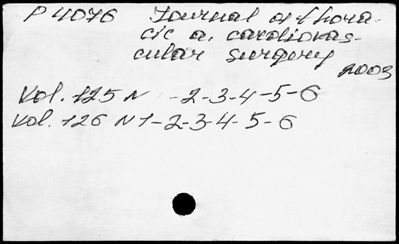 P 4076 Journal of thora-
cic a. cardiovas-
cular surgery
2003
Vol. 125 N -2-3-4-5-6
Vol. 126 N 1-2-3-4-5-6